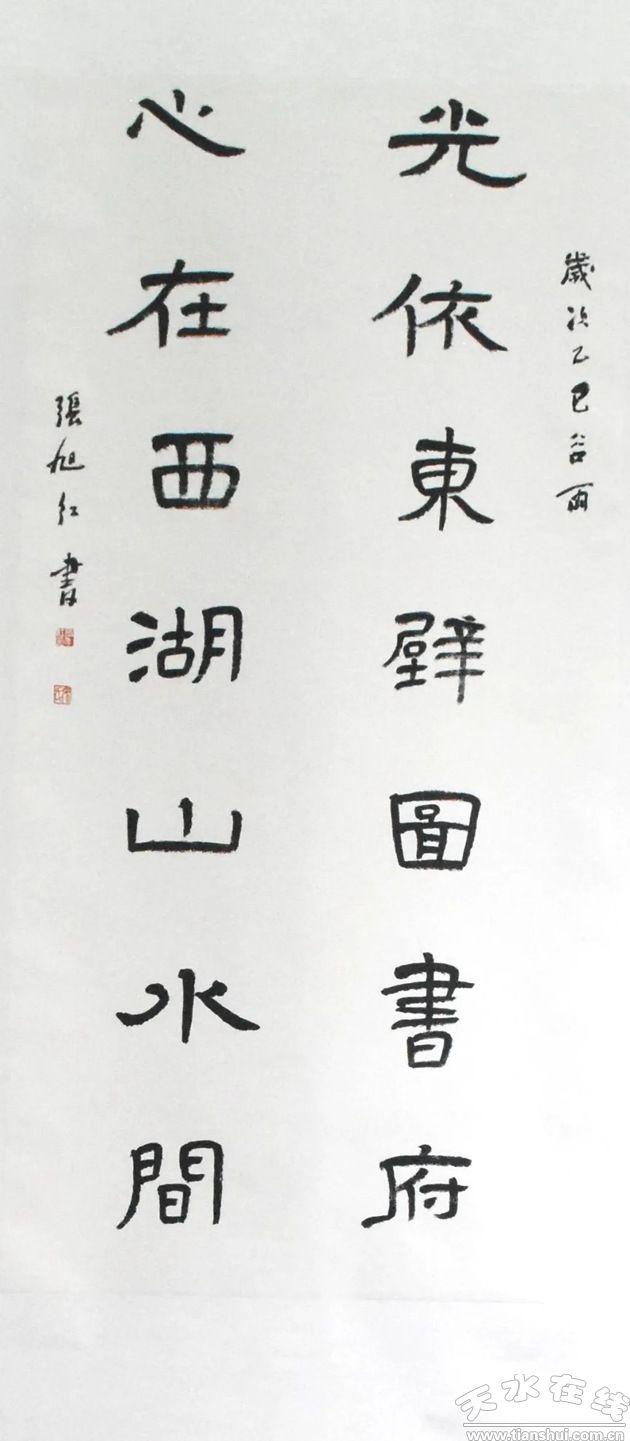 歲次乙巳谷雨
光依東壁圖書府
心在西湖山水間
張旭紅書
天水在线
www.tianshui.com.cn